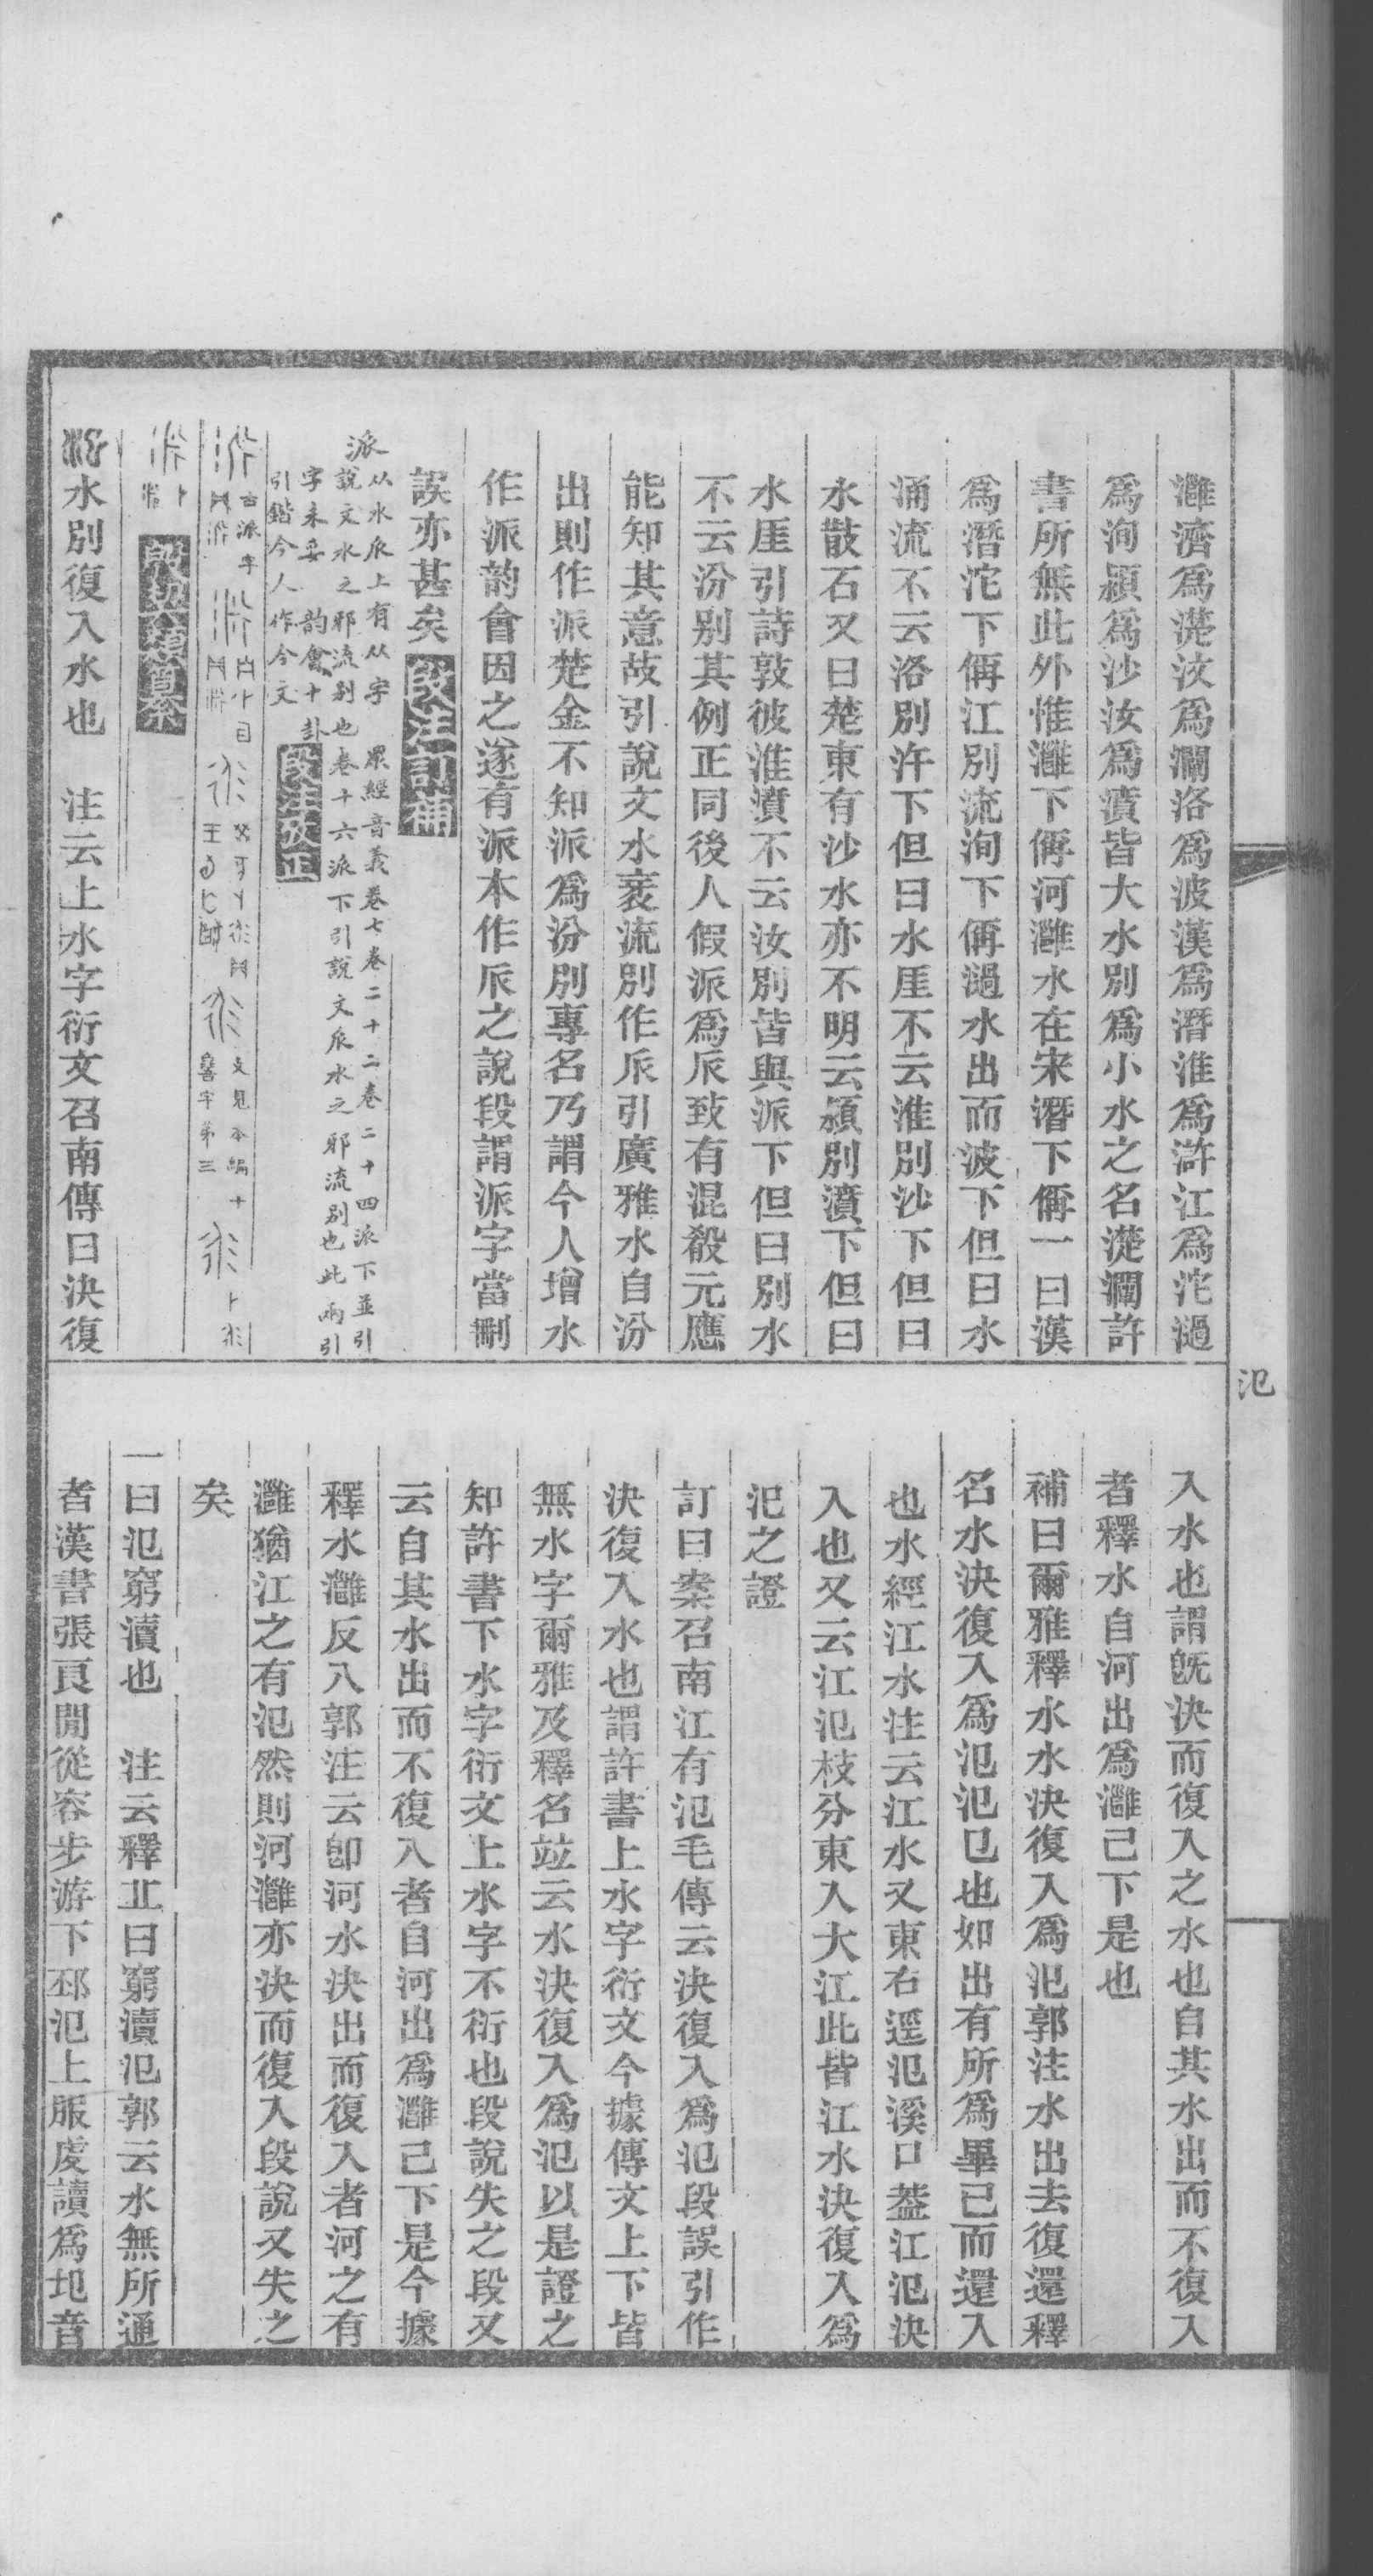 灉濟爲濋汶爲瀾洛爲波漢爲潛淮爲滸江爲沱濄
爲洵潁爲沙汝爲濆皆大水別爲小水之名濋瀾許
書所無此外惟灉下偁河灉水在宋潛下偁一曰漢
爲潛沱下偁江別流洵下偁濄水出而波下但曰水
涌流不云洛別汻下但曰水厓不云淮別沙下但曰
水散石又曰楚東有沙水亦不明云潁別濆下但曰
水厓引詩敦彼淮濆不云汝別皆與派下但曰別水
不云汾別其例正同後人假派爲𠂢致有混殽元應
能知其意故引說文水衺流別作𠂢引廣雅水自汾
出則作派楚金不知派爲汾別專名乃謂今人增水
作派韵會因之遂有派本作𠂢之說段謂派字當刪
誤亦甚矣 段注訂補
派 从水𠂢上有从字 眾經音義卷七卷二十二卷二十四派下並引
說文水之邪流別也卷十六派下引說文𠂢水之邪流別也此兩引
字未妥 韵會十卦
引鍇今人作今文 段注攷正
古派字
文見本編十
字第三
殷契類纂
水別復入水也 注云上水字衍文召南傳曰決復
氾
入水也謂旣決而復入之水也自其水出而不復入
者釋水自河出爲灉已下是也
補曰爾雅釋水水決復入爲氾郭注水出去復還釋
名水決復入爲氾氾巳也如出有所爲畢已而還入
也水經江水注云江水又東右逕氾溪口葢江氾決
入也又云江氾枝分東入大江此皆江水決復入爲
氾之證
訂曰案召南江有氾毛傳云決復入爲氾段誤引作
決復入水也謂許書上水字衍文今據傳文上下皆
無水字爾雅及釋名竝云水決復入爲氾以是證之
知許書下水字衍文上水字不衍也段說失之段又
云自其水出而不復入者自河出爲灉已下是今據
釋水灉反入郭注云卽河水決出而復入者河之有
灉猶江之有氾然則河灉亦決而復入段說又失之
矣
一曰氾窮瀆也 注云釋丘曰窮瀆氾郭云水無所通
者漢書張良閒從容步游下邳氾上服虔讀爲圯音